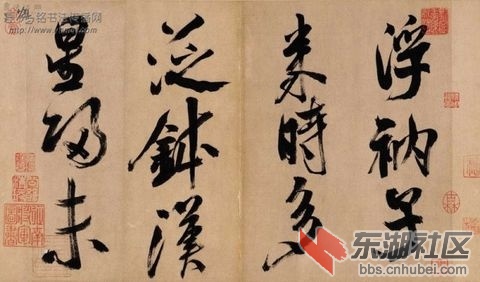 浮衲子
来時多
泛鉢漢
星歸未
东湖社区
bbs.cnhubei.com